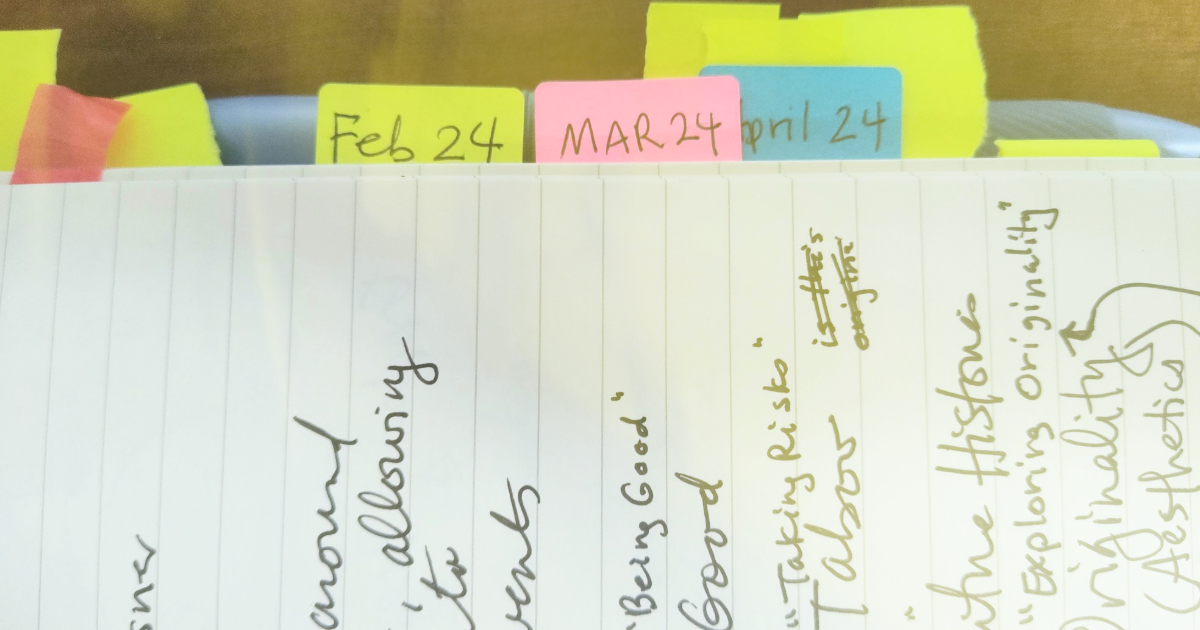 Feb 24
MAR 24
pril 24
around
allowing
to
"Being Good"
Good
"Taking Risks"
is this
Taboo
"Exploring Originality"
Originality
(Aesthetics)